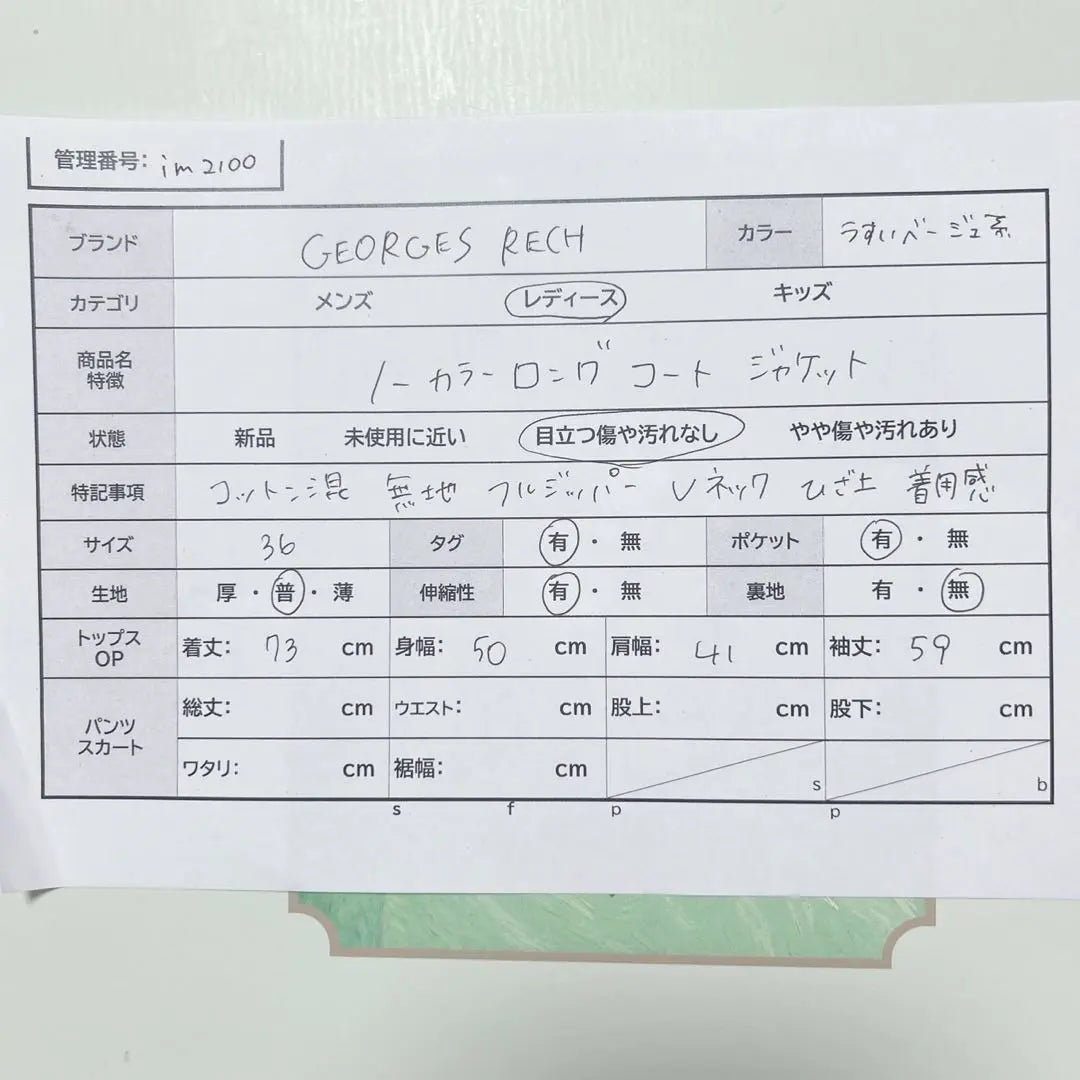 管理番号: im2100
ブランド GEORGES RECH カラー うすいベージュ系
カテゴリ メンズ レディース キッズ
商品名 特徴 ノーカラーロングコート ジャケット
状態 新品 未使用に近い 目立つ傷や汚れなし やや傷や汚れあり
特記事項 コットン混 無地 フルジッパー Vネック ひざ上 着用感
サイズ 36 タグ 有・無 ポケット 有・無
生地 厚・普・薄 伸縮性 有・無 裏地 有・無
トップス OP 着丈: 73 cm 身幅: 50 cm 肩幅: 41 cm 袖丈: 59 cm
パンツ スカート 総丈: cm ウエスト: cm 股上: cm 股下: cm
ワタリ: cm 裾幅: cm s b
s f p p